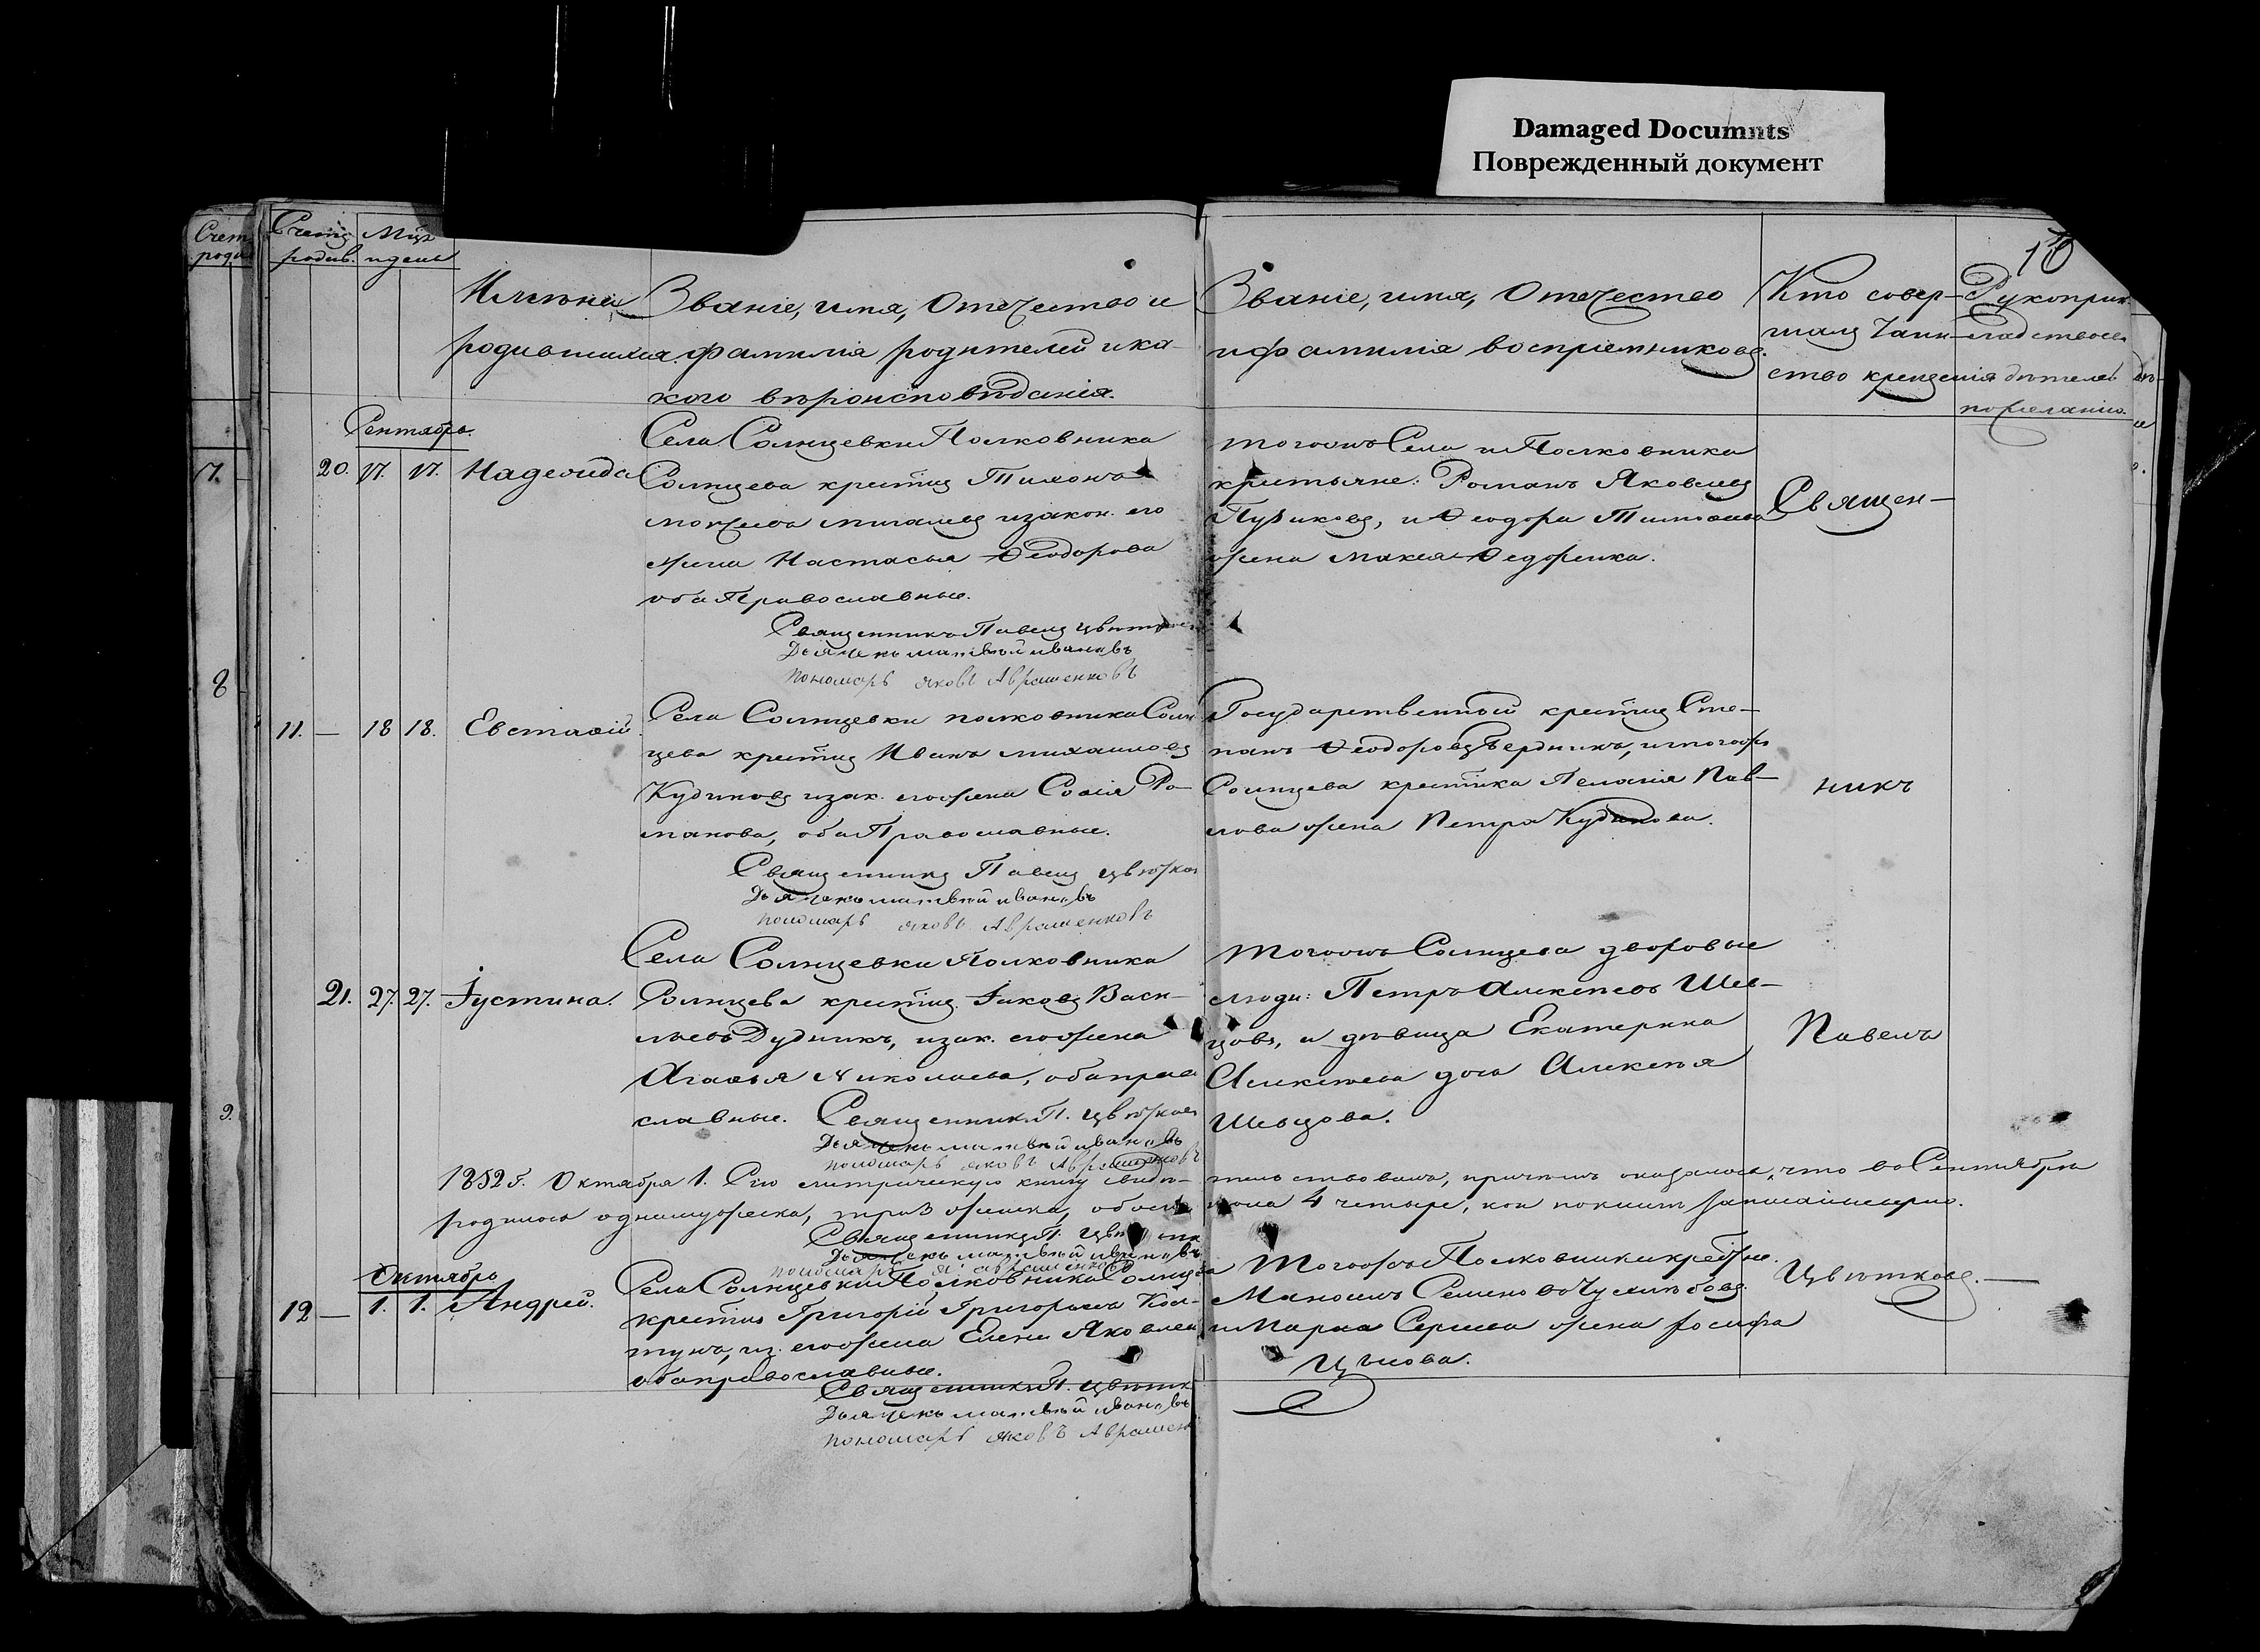 Damaged Documnts
Поврежденный документ
Счетъ родив.
Мцъ и день
Имѣна
родившихся.
Званіе, имя, Отечество и
фамилія родителей и ка-
кого вѣроисповѣданія.
Званіе, имя, Отечество
и фамилія воспріемниковъ.
Кто совер-
шалъ Таин-
ство крещенія
Рукоприк-
ладство сви
дѣтелей
по желанію.
10
Сентябрь.
20. 17. 17. Надежда
Села Солнцевки Полковника
Солнцева крестьян. Тихонъ
его
жена Настасья Ѳеодорова
оба Православные.
Священникъ Павелъ Цвѣтков
Дьячекъ матвѣй ивановъ
пономарь яковъ Аврашенковъ
тогожъ Села и Полковника
крестьяне: Романъ Яковлевъ
и Ѳеодора
жена Ѳедоренка.
11. — 18 18. Евстафій.
Села Солнцевки полковника Солн
цева крестьян. Иванъ михаиловъ
Кудиновъ и зак. его жена Софія Ро-
манова, оба Православные.
Священникъ Павелъ Цвѣтков
Дьячекъ матвѣй ивановъ
пономарь яковъ Аврашенковъ
Государственный крестьян. Сте-
панъ Ѳеодоровъ и тогожъ
Солнцева крестьянка Пелагія Пав-
лова жена Петра Кудинова.
21. 27. 27. Іустина.
Села Солнцевки Полковника
Солнцева крестьян. Іаковъ Васи-
льевъ Дудникъ, и зак. его жена
Агафья Николаева, оба право
славные. Священникъ П. Цвѣтков
Дьячекъ матвѣй ивановъ
пономарь яковъ Аврашенковъ
тогожъ Солнцева дворовые
люди: Петръ Алексѣевъ Шев-
цовъ, и дѣвица Екатерина
Алексѣева дочь Алексѣя
Шевцова.
Священ-
никъ
Павелъ
Цвѣтковъ. —
1852 г. Октября 1. Сію метрическую книгу свидѣ-
тельствовали, причемъ оказалось, что въ Сентябрѣ
родилось одинъ мужеска, три 3 женска, обоего
пола 4 четыре, кои по книгѣ записаны вѣрно.
Священникъ П. Цвѣтков
Дьячекъ матвѣй ивановъ
пономарь я. аврашенковъ
Октябрь
12 — 1. 1. Андрей.
Села Солнцевки Полковника Солнцева
крестьян. Григорій Григорьевъ Кол-
тунъ, и з. его жена Елена Яковлев
оба православные.
Священникъ П. Цвѣтк
Дьячекъ матвѣй ивановъ
пономарь яковъ Аврашенк
Тогожъ Полковника крестьяне.
Мануилъ Семеновъ
и Марѳа Сергеева жена Іосифа